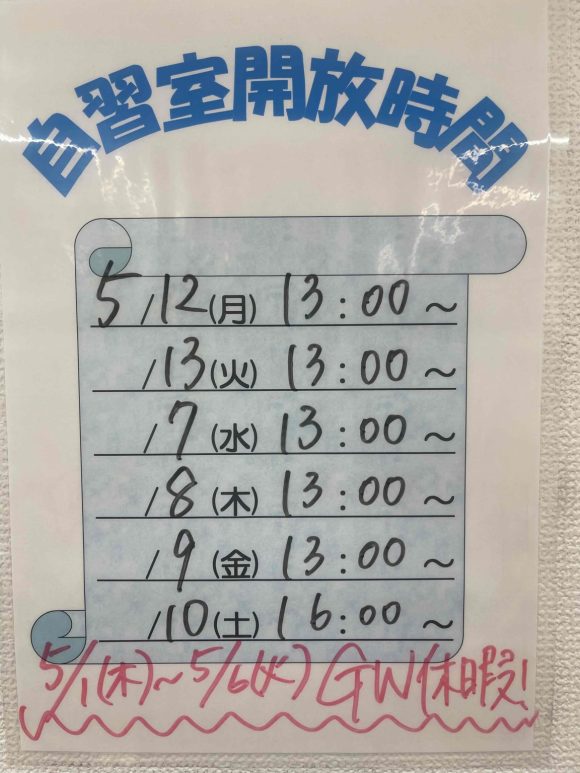 自習室開放時間
5/12(月) 13:00~
/13(火) 13:00~
/7(水) 13:00~
/8(木) 13:00~
/9(金) 13:00~
/10(土) 16:00~
5/1(木)~5/6(火)GW休暇!